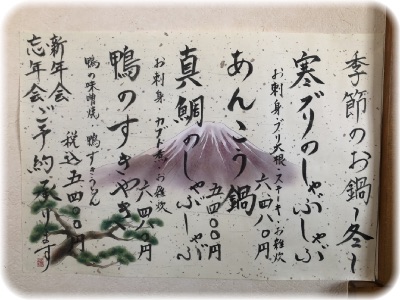 季節のお鍋～冬～
寒ブリのしゃぶしゃぶ
お刺身 ブリ大根・ステーキ・お雑炊
六四八〇円
あんこう鍋
五四〇〇円
真鯛のしゃぶしゃぶ
お刺身 カブト煮・お雑炊
六四八〇円
鴨のすきやき
鴨の味噌焼 鴨すきうどん
税込五四〇〇円
新年会
忘年会ご予約承ります